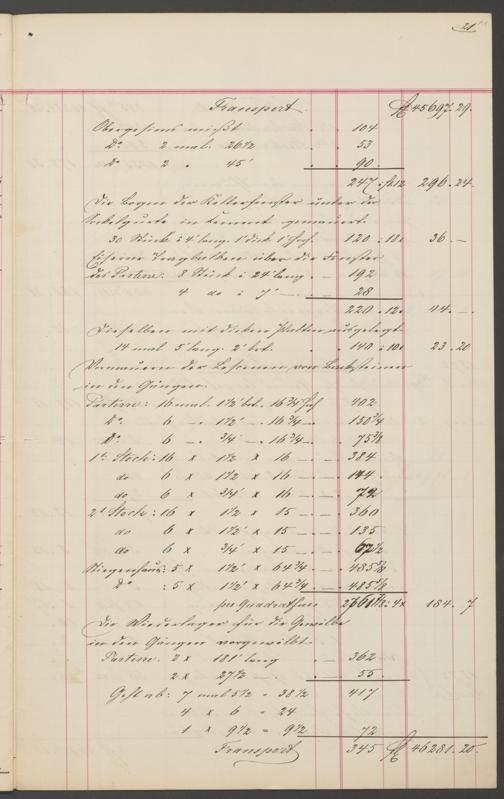 21
Transport. fl 45697. 29.
Obergesims mißt . . 104
do. 2 mal. 26 1/2 . 53
do 2 " 45' . . 90
247 : fl 12 296. 24.
Die Bogen der Kellerfenster unter der
Sockelgurte in Cement gemauert.
30 Stück à 4' lang. 1' dick 1' hoch. 120 : 18. 36. —
Eiserne Tragbalken über die Fenster
des Parterre: 8 Stück à 24' lang . — 192
4 do à 7' — . — 28
220 . 12. 44. —
Dieselben mit dicken ausgelegt
14 mal 5' lang. 2' brt. . 140 : 10. 23. 20
der Lesenen von Backsteinen
in den Gängen.
Parterre: 16 mal. 1 1/2' brt. 16 3/4 hoch 402
do. 6 — . 1 1/2' — . 16 3/4 — . 150 3/4
do. 6 — . 3/4' — . 16 3/4 — . 75 3/8
1r Stock: 16 x 1 1/2 x 16 — . — 384
do 6 x 1 1/2 x 16 — . — 144
do 6 x 3/4' x 16 — . — 72
2r Stock: 16 x 1 1/2 x 15 — . — 360
do 6 x 1 1/2' x 15 — . — 135
do 6 x 3/4' x 15 — . — 67 1/2
Stiegenhaus: 5 x 1 1/2' x 64 3/4 — . — 485 5/8
do : 5 x 1 1/2' x 64 3/4 — . — 485 5/8
per Quadratschuh : 4x 184. 7
Die Wiederlager für die Gewölbe
in den Gängen vorgewölbt.
Parterre. 2 x 181' lang . — 362
2 x 27 1/2 — . . — 55
Geht ab: 7 mal 5 1/2 = 38 1/2 417
4 x 6 = 24
1 x 9 1/2 = 9 1/2 72
Transport 345 fl 46281. 20.